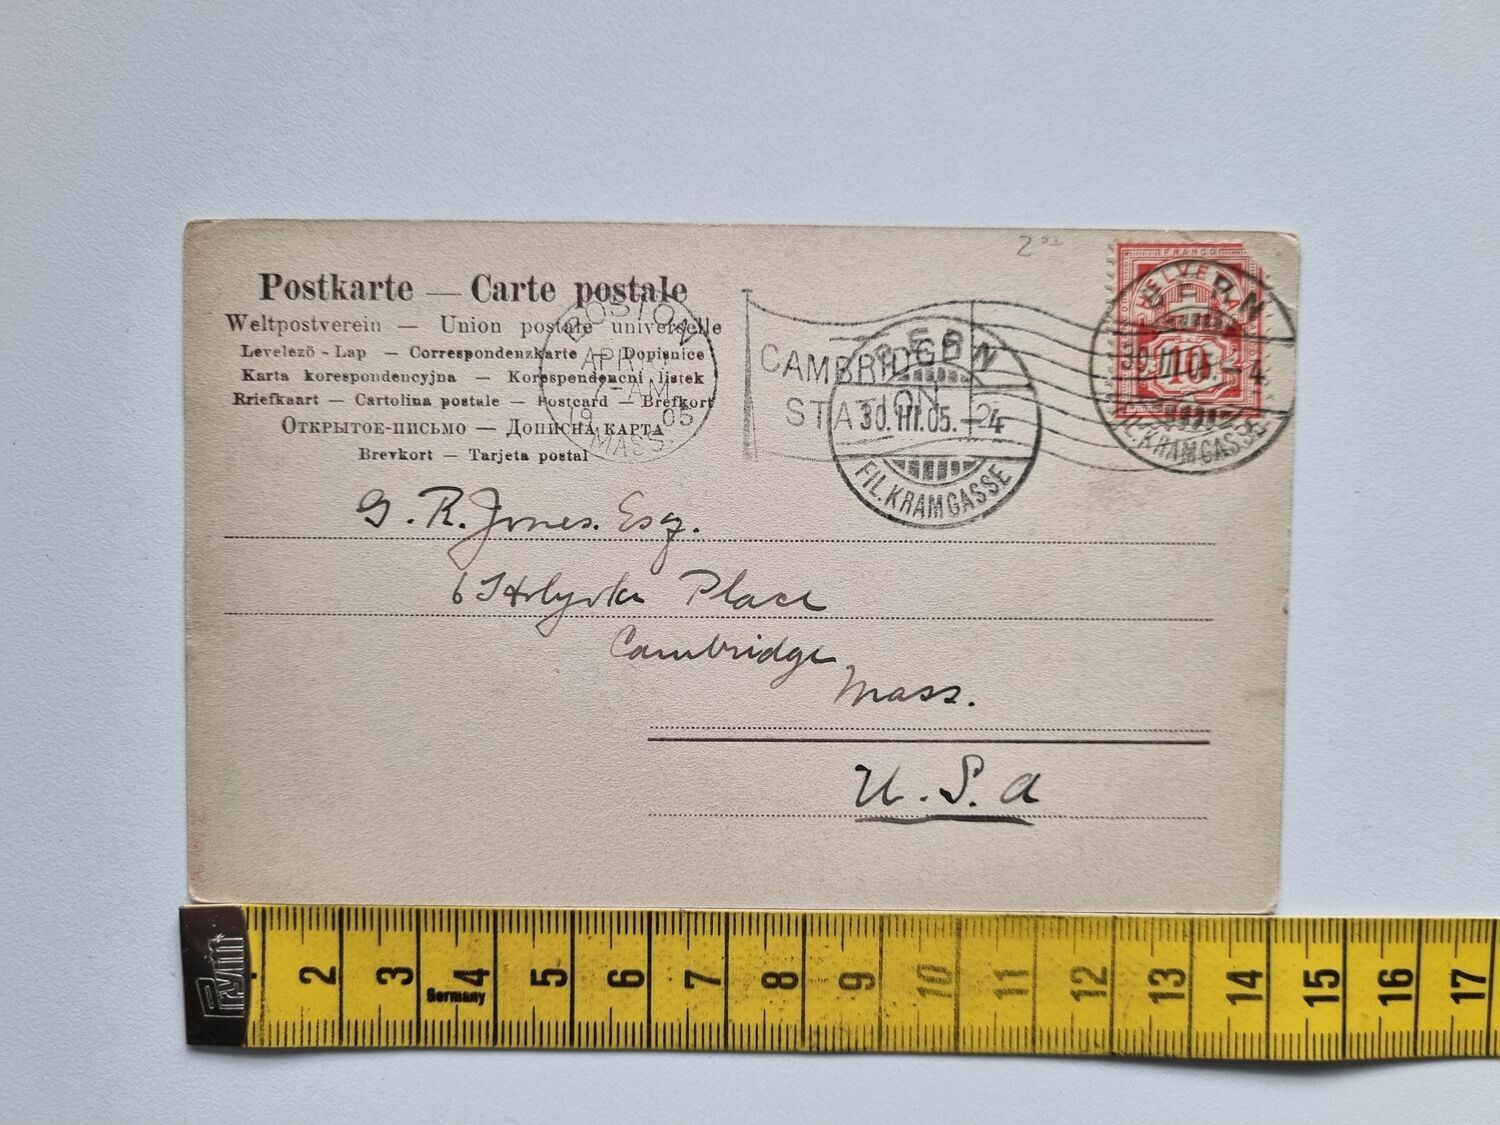 2
Postkarte — Carte postale
Weltpostverein — Union postale universelle
Levelezö - Lap — Correspondenzkarte — Dopisnice
Karta korespondencyjna — Korespondencni listek
Briefkaart — Cartolina postale — Postcard — Brefkort
Открытое-письмо — Дописна карта
Brevkort — Tarjeta postal
BOSTON
APR
AM
19 05
MASS.
CAMBRIDGE
STATION
BERN
30.III.05.–4
FIL. KRAMGASSE
FRANCO
HELVETIA
10
BERN
30.III.05.–4
FIL. KRAMGASSE
G. R. Jones. Esq.
6 Holyoke Place
Cambridge
Mass.
U.S.A
PRYM
2 3 4 5 6 7 8 9 10 11 12 13 14 15 16 17
Germany